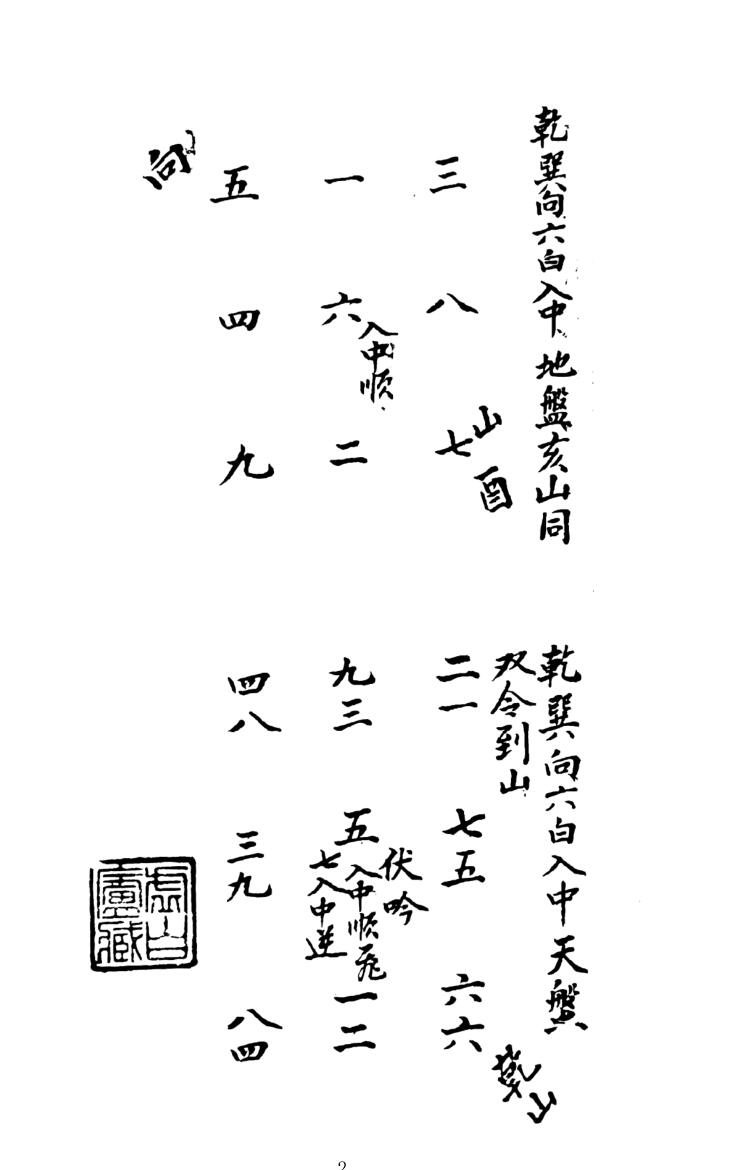 乾巽向六白入中 地盤亥山同
三 一 五 向
八 六 四
入中順
七 二 九
山
酉
乾巽向六白入中 天盤
双令到山
二 九 四
一 三 八
七 五 三
五 七 九
伏吟
入中順飛
入中逆
六 一 八
六 二 四
乾山
虛白廬藏
2